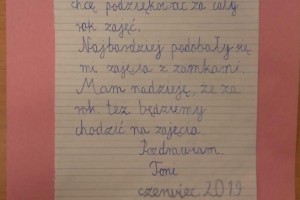 chcę podziękować za cały
rok zajęć.
Najbardziej podobały się
mi zajęcia z zamkami.
Mam nadzieję, że za
rok też będziemy
chodzić na zajęcia
Pozdrawiam
Toni
czerwiec 2019